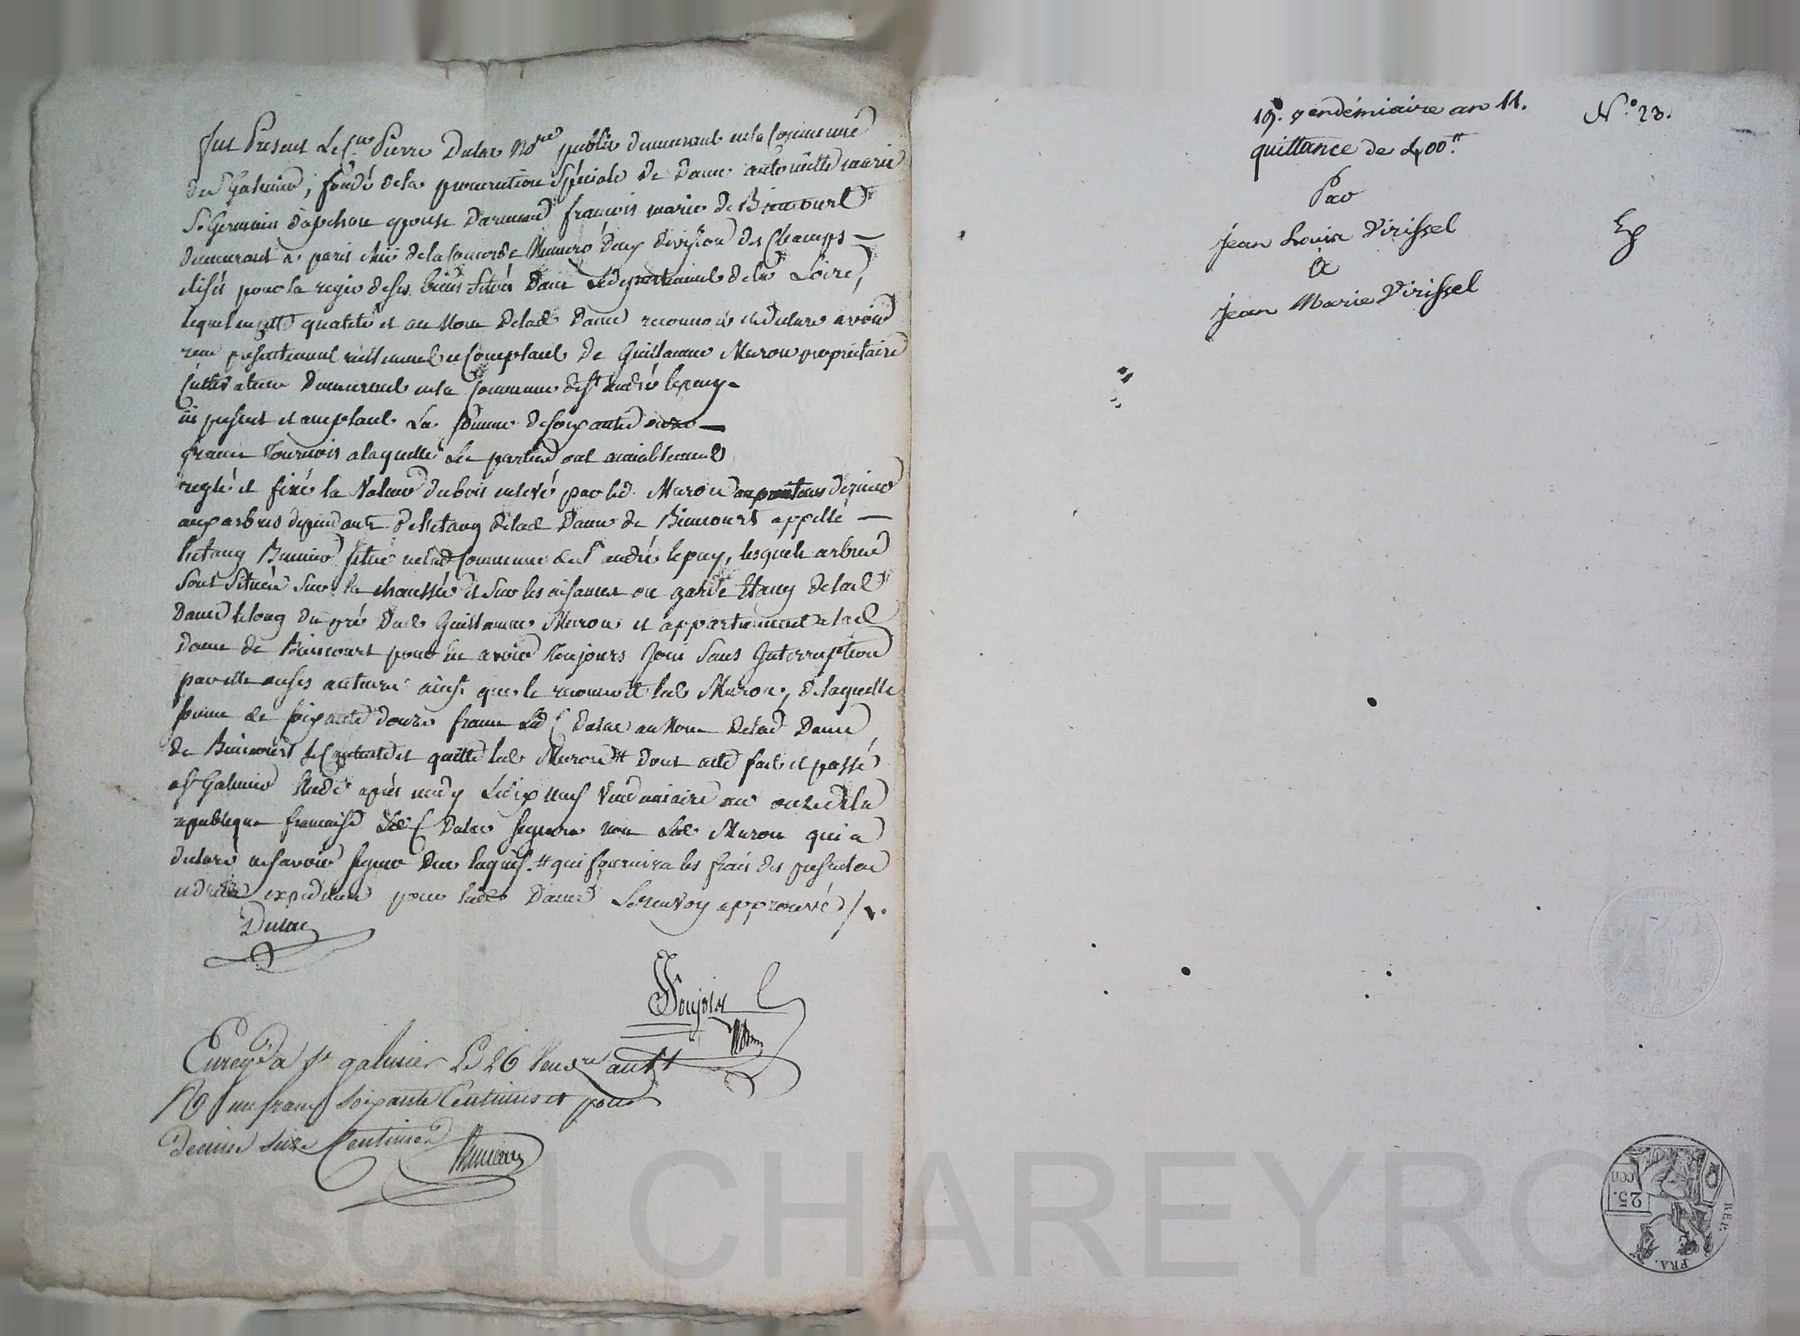 fut Present Le Cen Pierre Dulac Nore public demeurant en la Commune
de St Galmier, fondé de la procuration Spéciale de Dame antoinette marie
St Germain d'apchon epouse d'armand françois marie de Bimcourt
demeurant à paris ruë de la Concorde Numero deux division des Champs
elisés pour la regie de ses biens Situés dans Le departement de la Loire,
lequel en cette qualité et au Nom de lad Dame reconnoit et declare avoir
recu presentement reellement et Comptant de Guillaume Muron propriétaire
Cultivateur demeurant en la Commune de St andré le puy
ici present et acceptant La Somme de soixante douze
francs Tournois a laquelle Les parties ont amiablement
reglé et fixé la Valeur du bois enlevé par led. Muron
aux arbres dependants de l'etang de lad Dame de Bimcourt appellé
l'etang situé en lad Commune de St andré le puy, lesquels arbres
Sont Situés Sur la chaussée et Sur les aisances ou garde Etang de lad
Dame le long du pré dud. Guillaume Muron et appartiennent a lad
Dame de Bimcourt pour les avoir toujours Joui Sans Interruption
par elle ou ses auteurs ainsi que le reconnoit led Muron, de laquelle
somme de soixante douze francs Led C Dulac au Nom de lad Dame
de Bimcourt se Contente et quitte led Muron # dont acte fait et passé
a St Galmier Etude après midy Le dix neuf Vendemiaire an onze de la
republique francaise Led C Dulac signera non Led Muron qui a
declaré ne savoir signer de ce requis. # qui fournira les frais des presentes
et d'une expedition pour lad Dame Le renvoy approuvé /.
Dulac
Enregd a St galmier Le 26 Vendre an 11
R un franc soixante Centimes et pour
Decime seize Centimes
19. vendémiaire an 11.
N.° 23.
quittance de 400.#
Par
Jean Louis Virissel
&
Jean Marie Virissel
REP. FRA.
25. cen
Pascal CHAREYRON